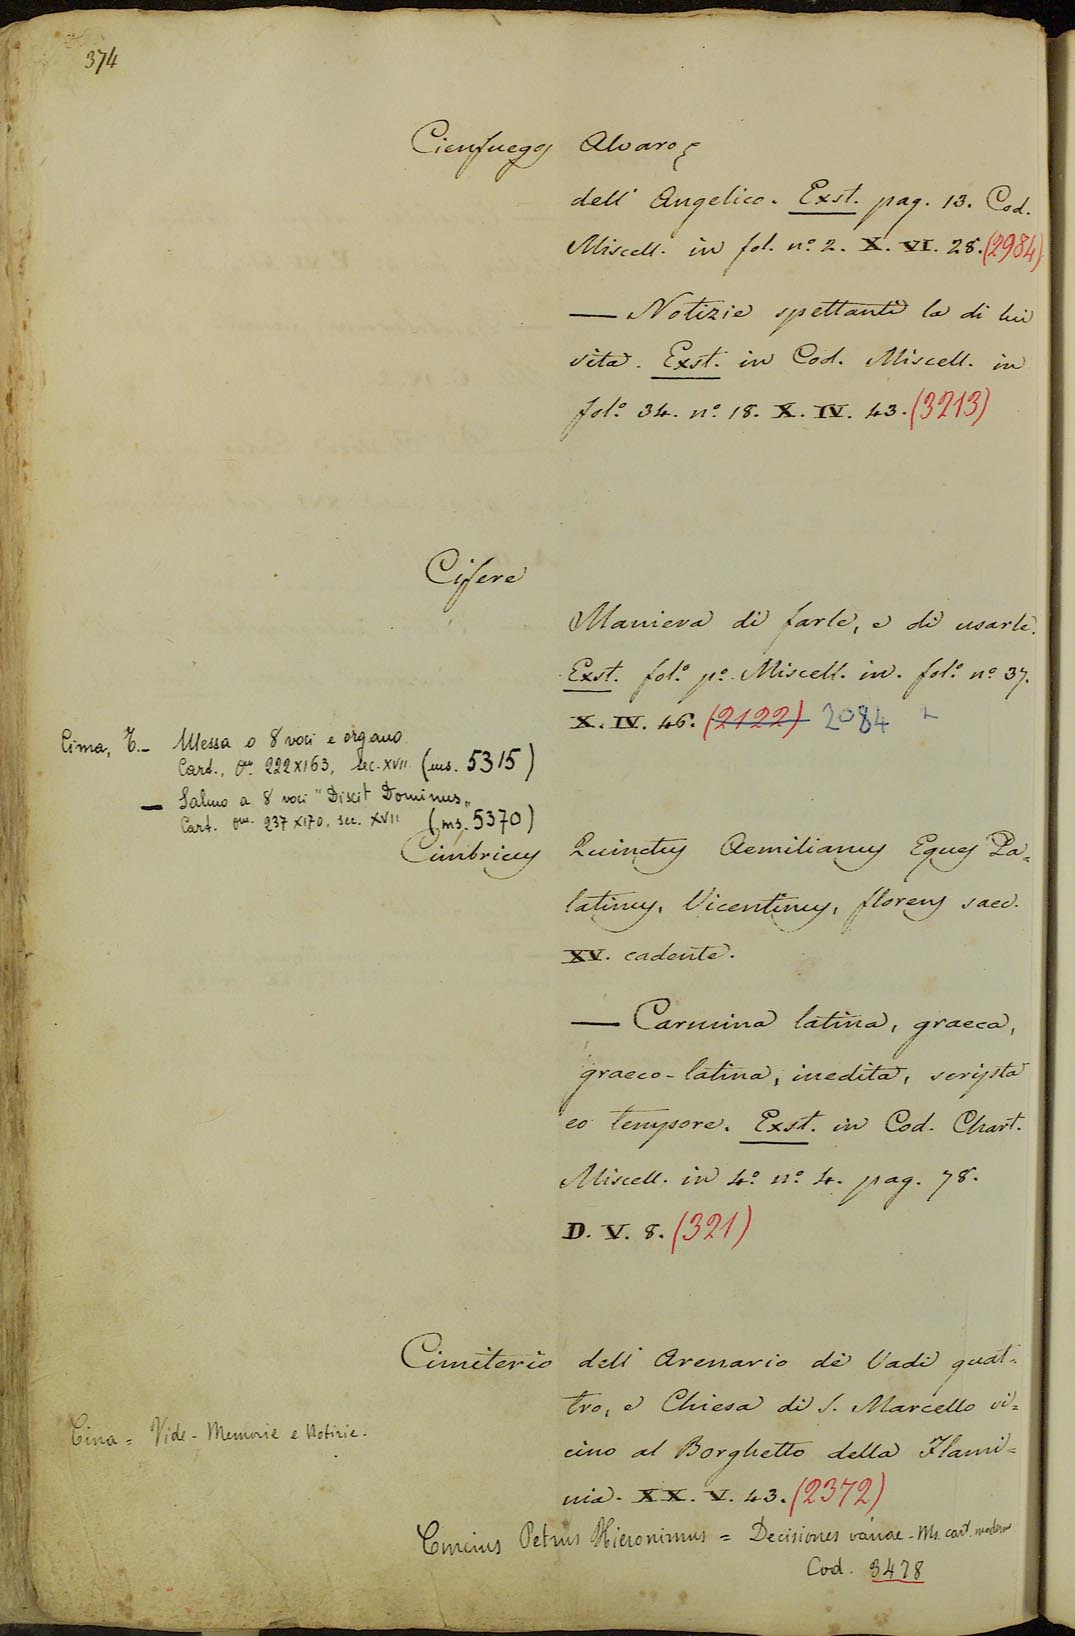 374
Cienfuegos Alvarog
dell' Angelico. Exst. pag. 13. Cod.
Miscell. in fol. n.º 2. X. VI. 28. (2984)
— Notizie spettanti la di lui
vita. Exst. in Cod. Miscell. in
fol.º 34. n.º 18. X. IV. 43. (3213)
Cifere
Maniera di farle, e di usarle.
Exst. fol.º p.º Miscell. in. fol.º n.º 37.
X. IV. 46. (2122) 2084
Cima, T. - Messa a 8 voci e organo.
Cart., 222x163, sec. XVII (ms. 5315)
— Salmo a 8 voci "Dixit Dominus„
Cart. 237x170, sec. XVII (ms. 5370)
Cimbricus Quinctus Aemilianus Eques Pa=
latinus, Vicentinus, florens saec.
XV. cadente.
— Carmina latina, graeca,
graeco-latina, inedita, scripta
eo tempore. Exst. in Cod. Chart.
Miscell. in 4.º n.º 4. pag. 78.
D. V. 8. (321)
Cimiterio dell' Arenario di Vadi quat=
tro, e Chiesa di S. Marcello vi=
cino al Borghetto della Flami=
nia. XX. V. 43. (2372)
Cina = Vide - Memorie e Notizie.
Cincius Petrus Hieronimus = Decisiones variae - Ms. cart. moderno
Cod. 3478